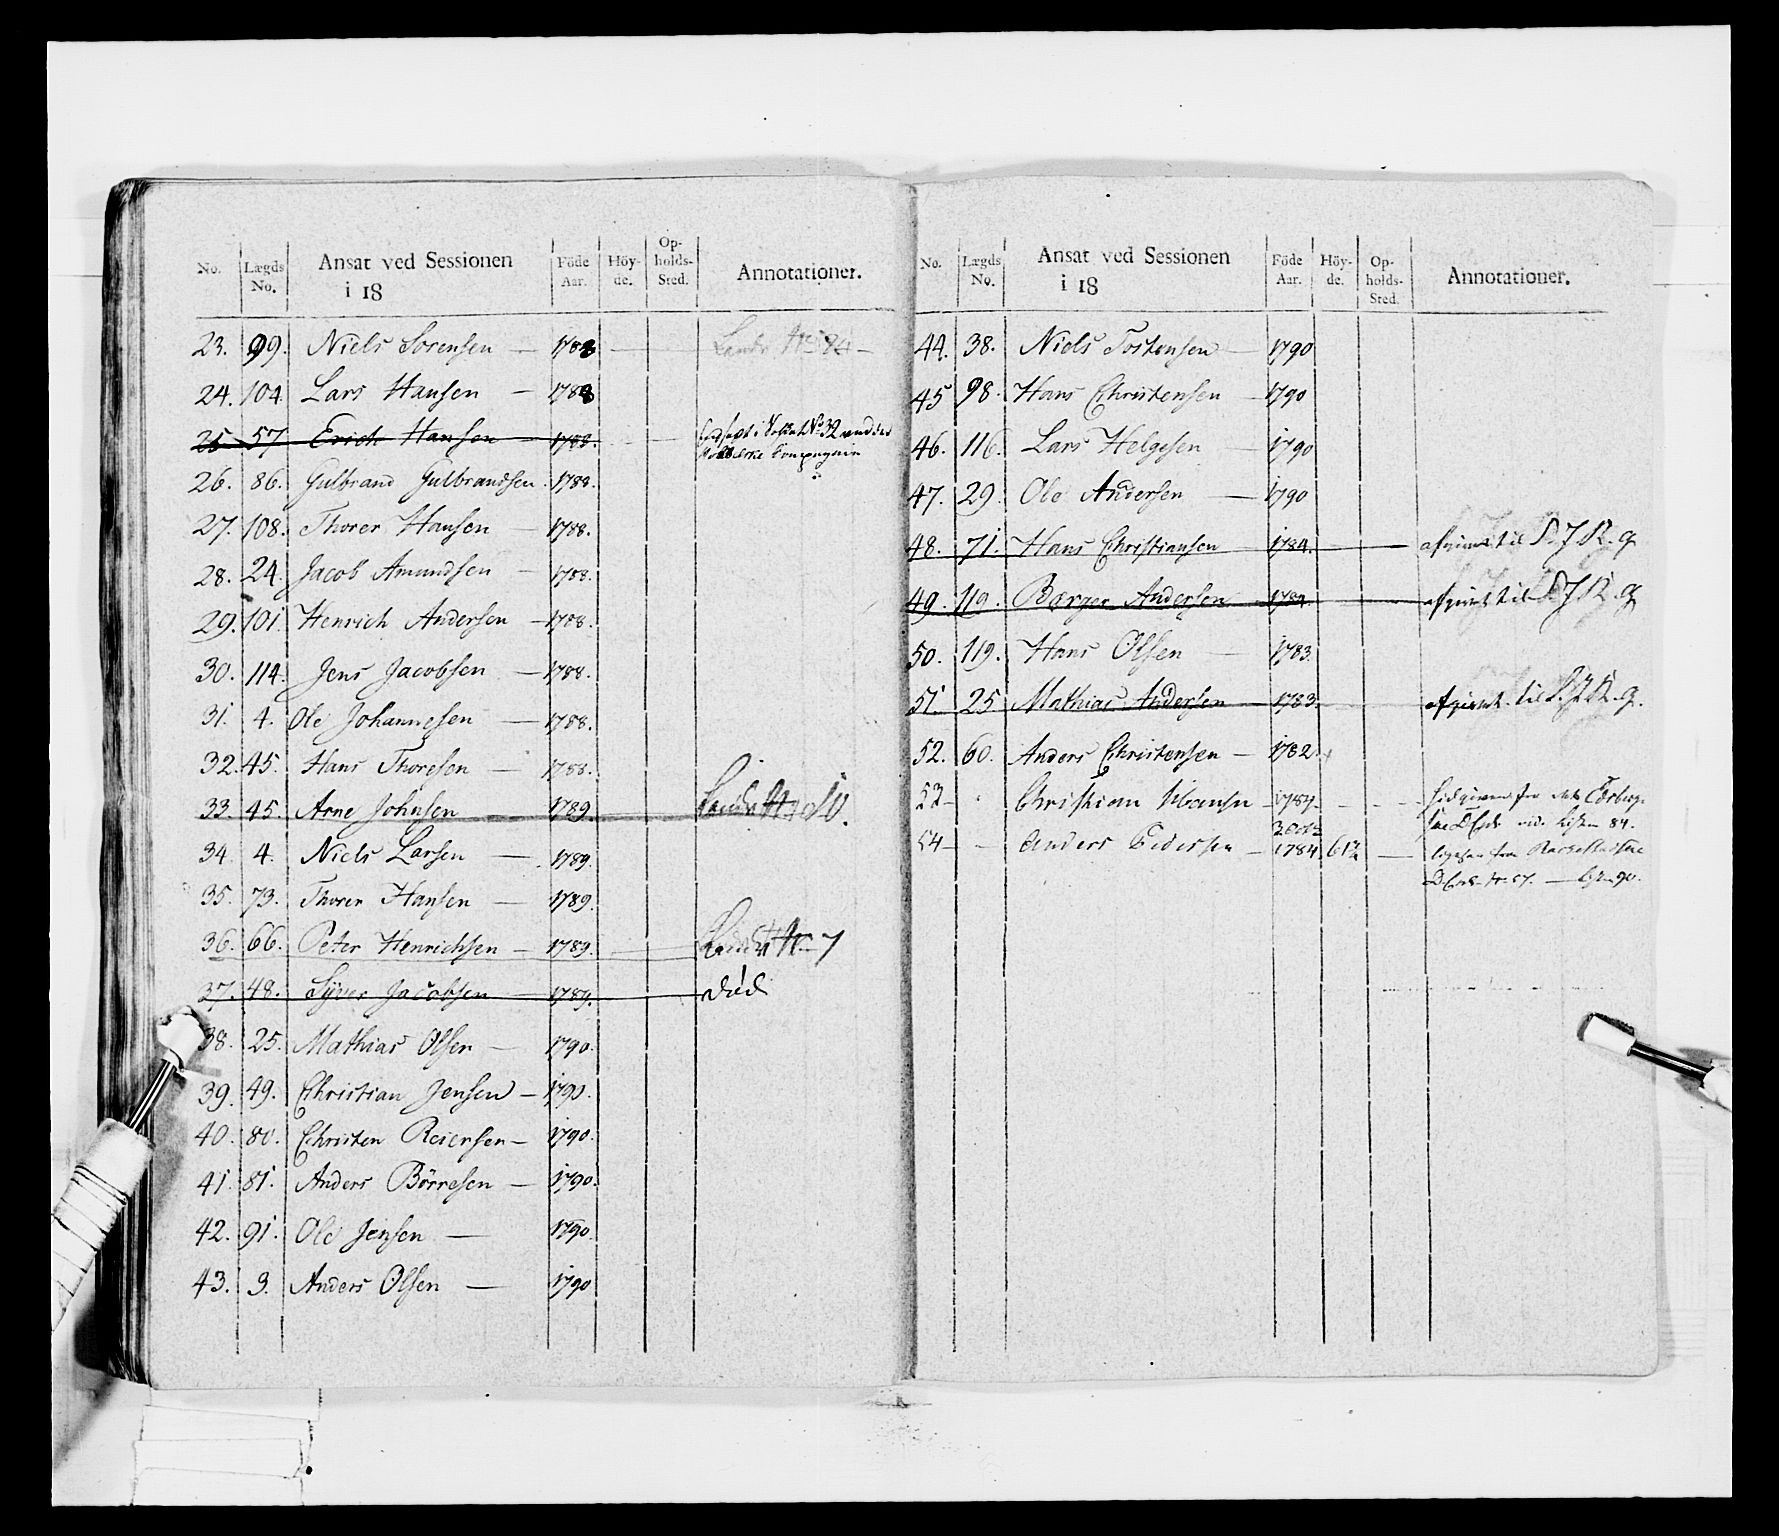 No. Lægds No. Ansat ved Sessionen i 18 Föde Aar. Höy-de. Op-holds-Sted. Annotationer.
23. 99. Niels Sorensen — 1788 —
24. 104. Lars Hansen — 1788
25 57 Erich Hansen — 1788. No 32
26. 86. Gulbrand Gulbrandsen. 1788.
27. 108. Thorer Hansen — 1788.
28. 24. Jacob Amundsen — 1788.
29. 101. Henrich Andersen — 1788.
30. 114. Jens Jacobsen — 1788.
31. 4. Ole Johannesen — 1788.
32. 45. Hans Thoresen — 1788.
33. 45. Arne Johnsen 1789
34. 4. Niels Larsen — 1789.
35. 73. Thorer Hansen — 1789.
36. 66. Peter Henrichsen — 1789. 7
37. 48. Syver Jacobsen 1789. død
38. 25. Mathias Olsen — 1790.
39. 49. Christian Jensen — 1790.
40. 80. Christen Reiersen — 1790.
41. 81. Anders Börresen — 1790.
42. 91. Ole Jensen — 1790.
43. 3. Anders Olsen — 1790
No. Lægds No. Ansat ved Sessionen i 18 Föde Aar. Höy-de. Op-holds-Sted. Annotationer.
44. 38. Niels Tostensen — 1790
45 98. Hans Christensen — 1790
46. 116. Lars Helgesen — 1790
47. 29. Ole Andersen — 1790
48. 71. Hans Christiansen 1784. til
49. 119. Borger Andersen 1784. til
50. 119. Hans Olsen — 1783.
51. 25 Mathias Andersen 1783. til
52. 60. Anders Christensen — 1782.
53 — Christian Hansen — 1787 —
84.
54 — Anders Pedersen — 1784 —
90.